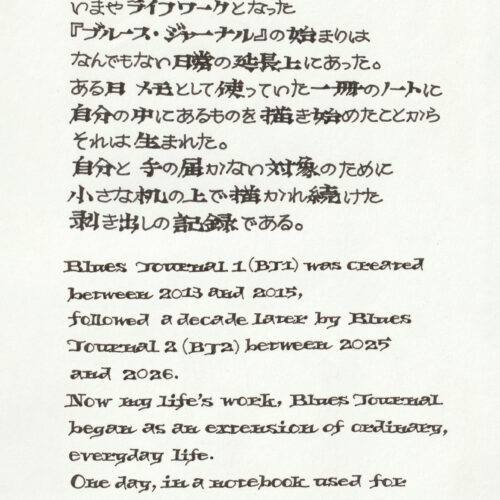 いまやライフワークとなった
『ブルース・ジャーナル』の始まりは
なんでもない日常の延長上にあった。
ある日 メモとして使っていた一冊のノートに
自分の中にあるものを描き始めたことから
それは生まれた。
自分と 手の届かない対象のために
小さな机の上で描かれ続けた
剥き出しの記録である。
Blues Journal 1 (BJ1) was created
between 2013 and 2015,
followed a decade later by Blues
Journal 2 (BJ2) between 2025
and 2026.
Now my life's work, Blues Journal
began as an extension of ordinary,
everyday life.
One day, in a notebook used for